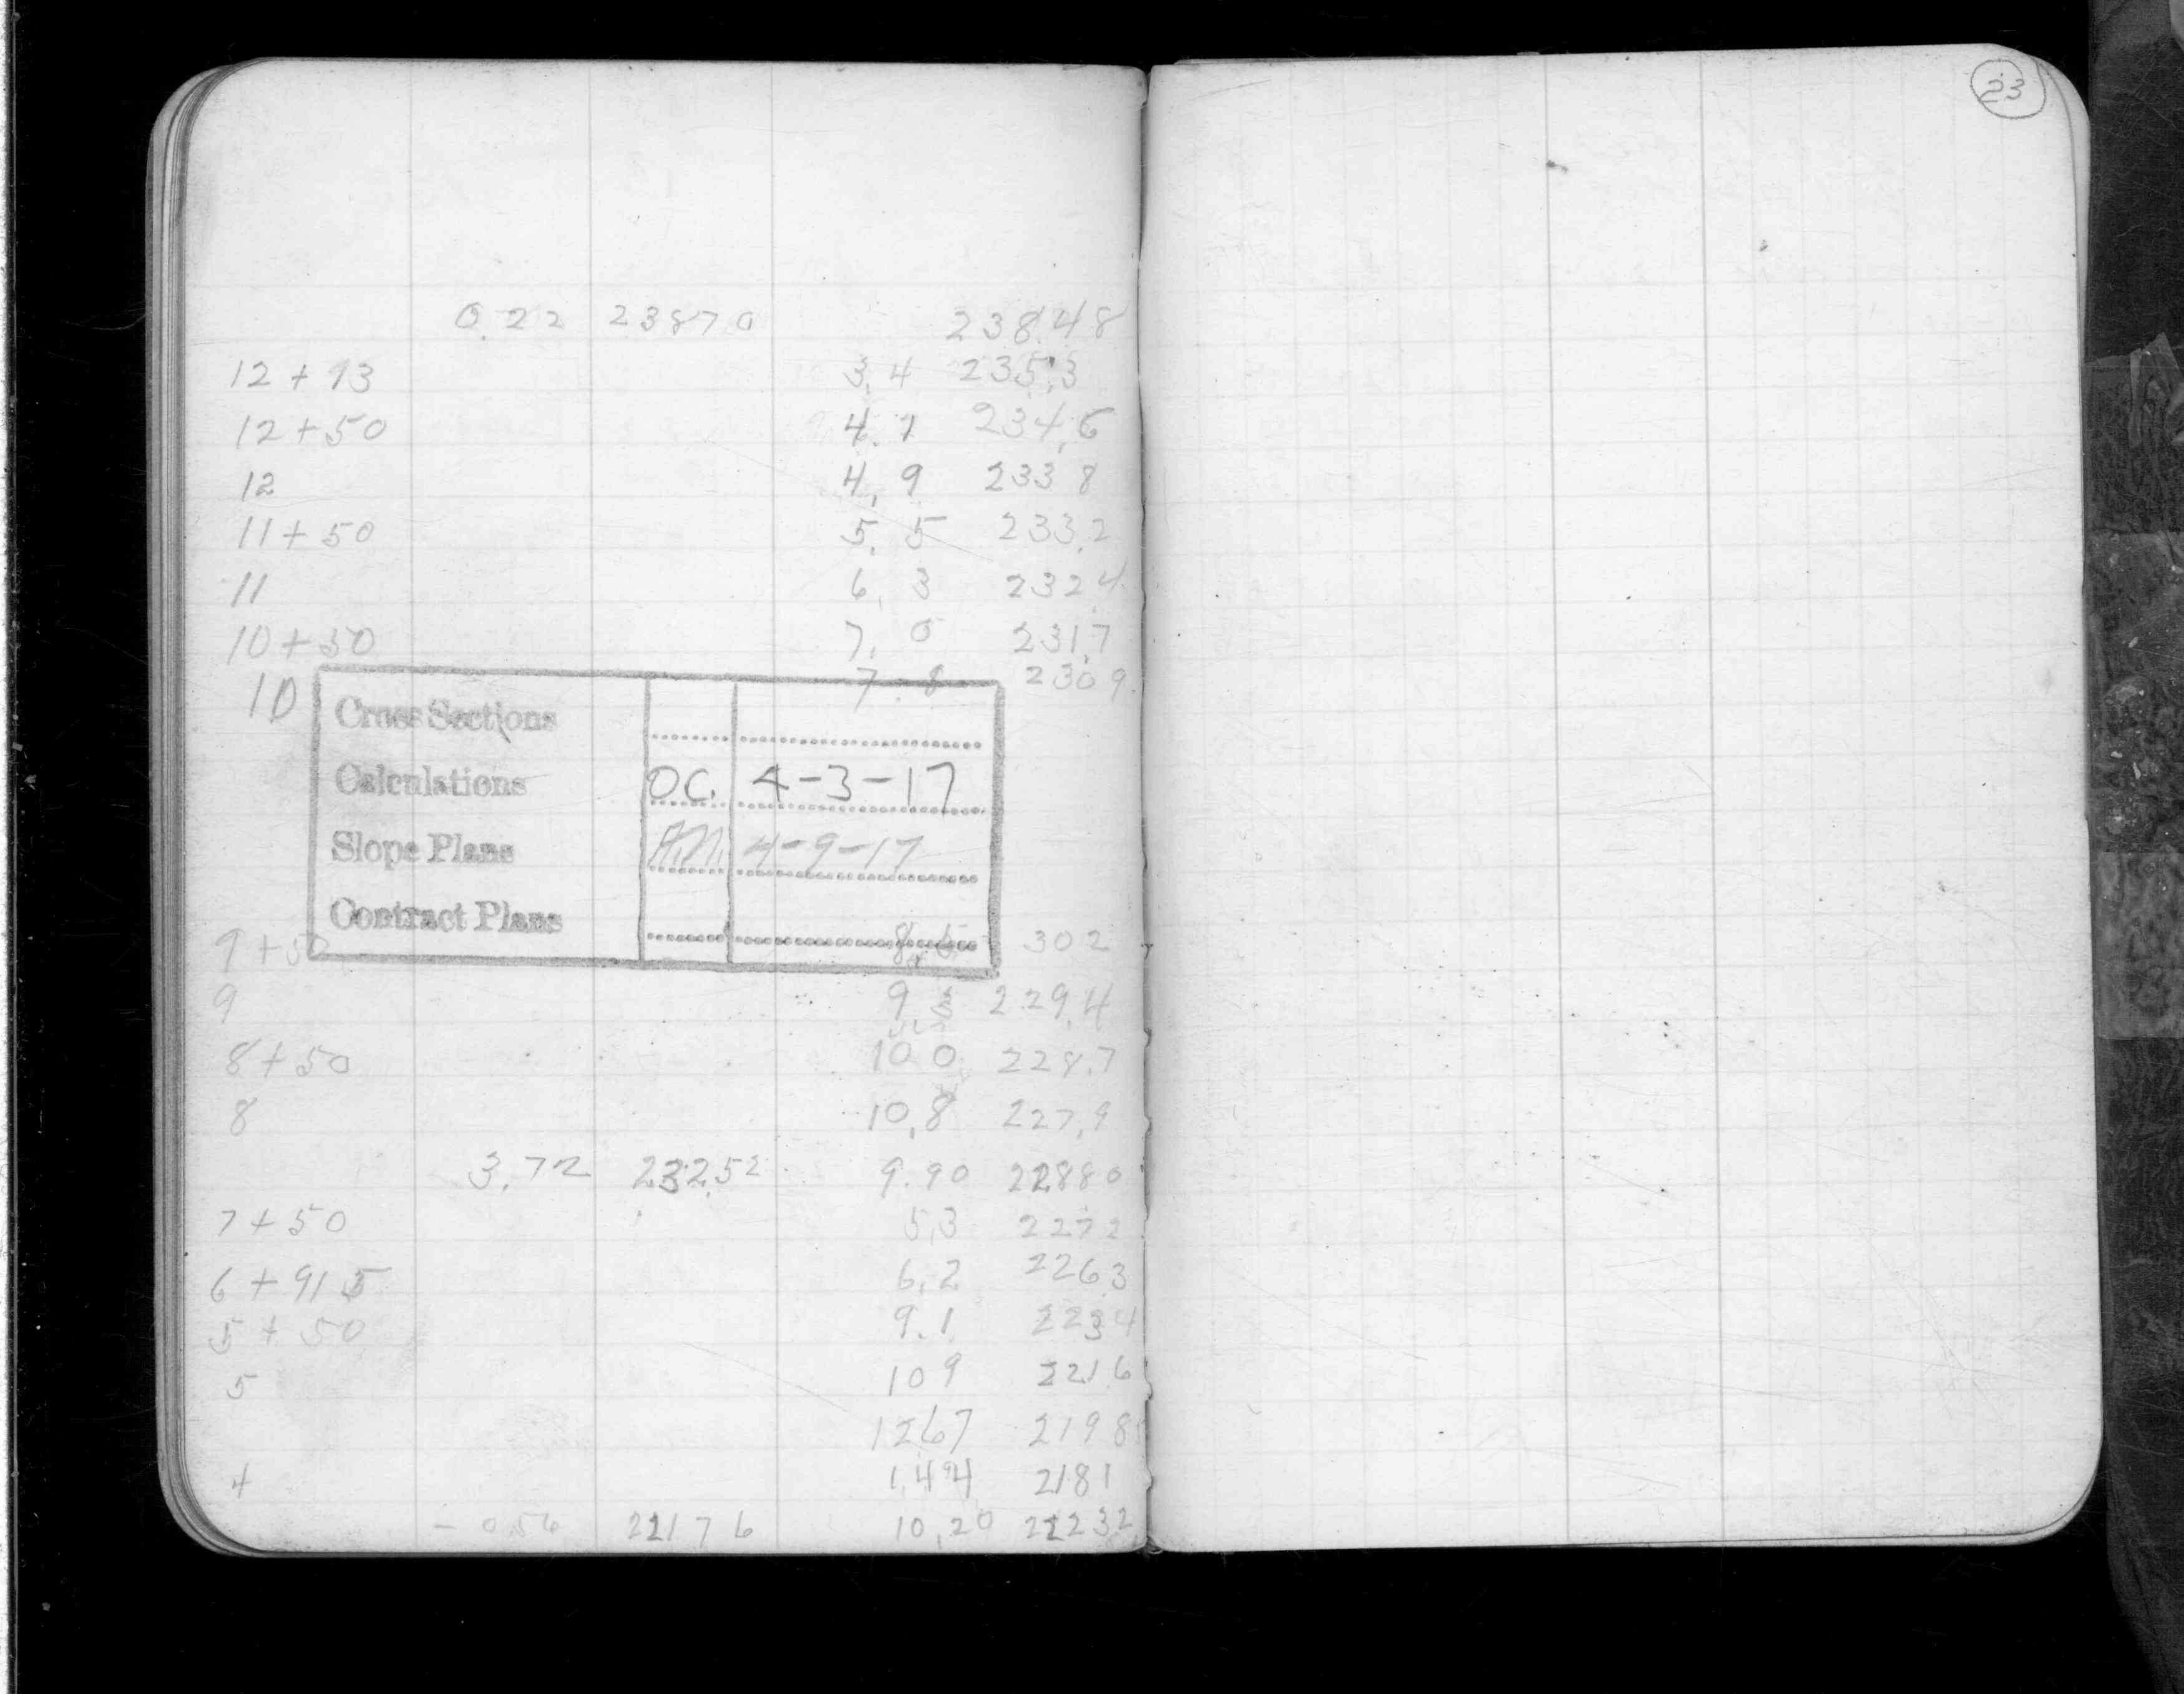 23
0.22 23870 238.48
12 + 93 3.4 235.3
12 + 50 4.1 234.6
12 4.9 233 8
11 + 50 5.5 233.2
11 6.3 232 4
10 + 50 7.0 231.7
10 7.8 230 9
Cross Sections
Calculations O.C. 4-3-17
Slope Plans 4-9-17
Contract Plans
9 + 50 8.5 302
9 9.3 229.4
8 + 50 10 0 228.7
8 10.8 227.9
3.72 232.52 9.90 22880
7 + 50 5.3 227 2
6 + 91 5 6.2 226.3
5 + 50 9.1 223 4
5 10 9 221 6
12 67 219 8
4 1,44 2181
- 0.56 221 7 6 10.20 222 32